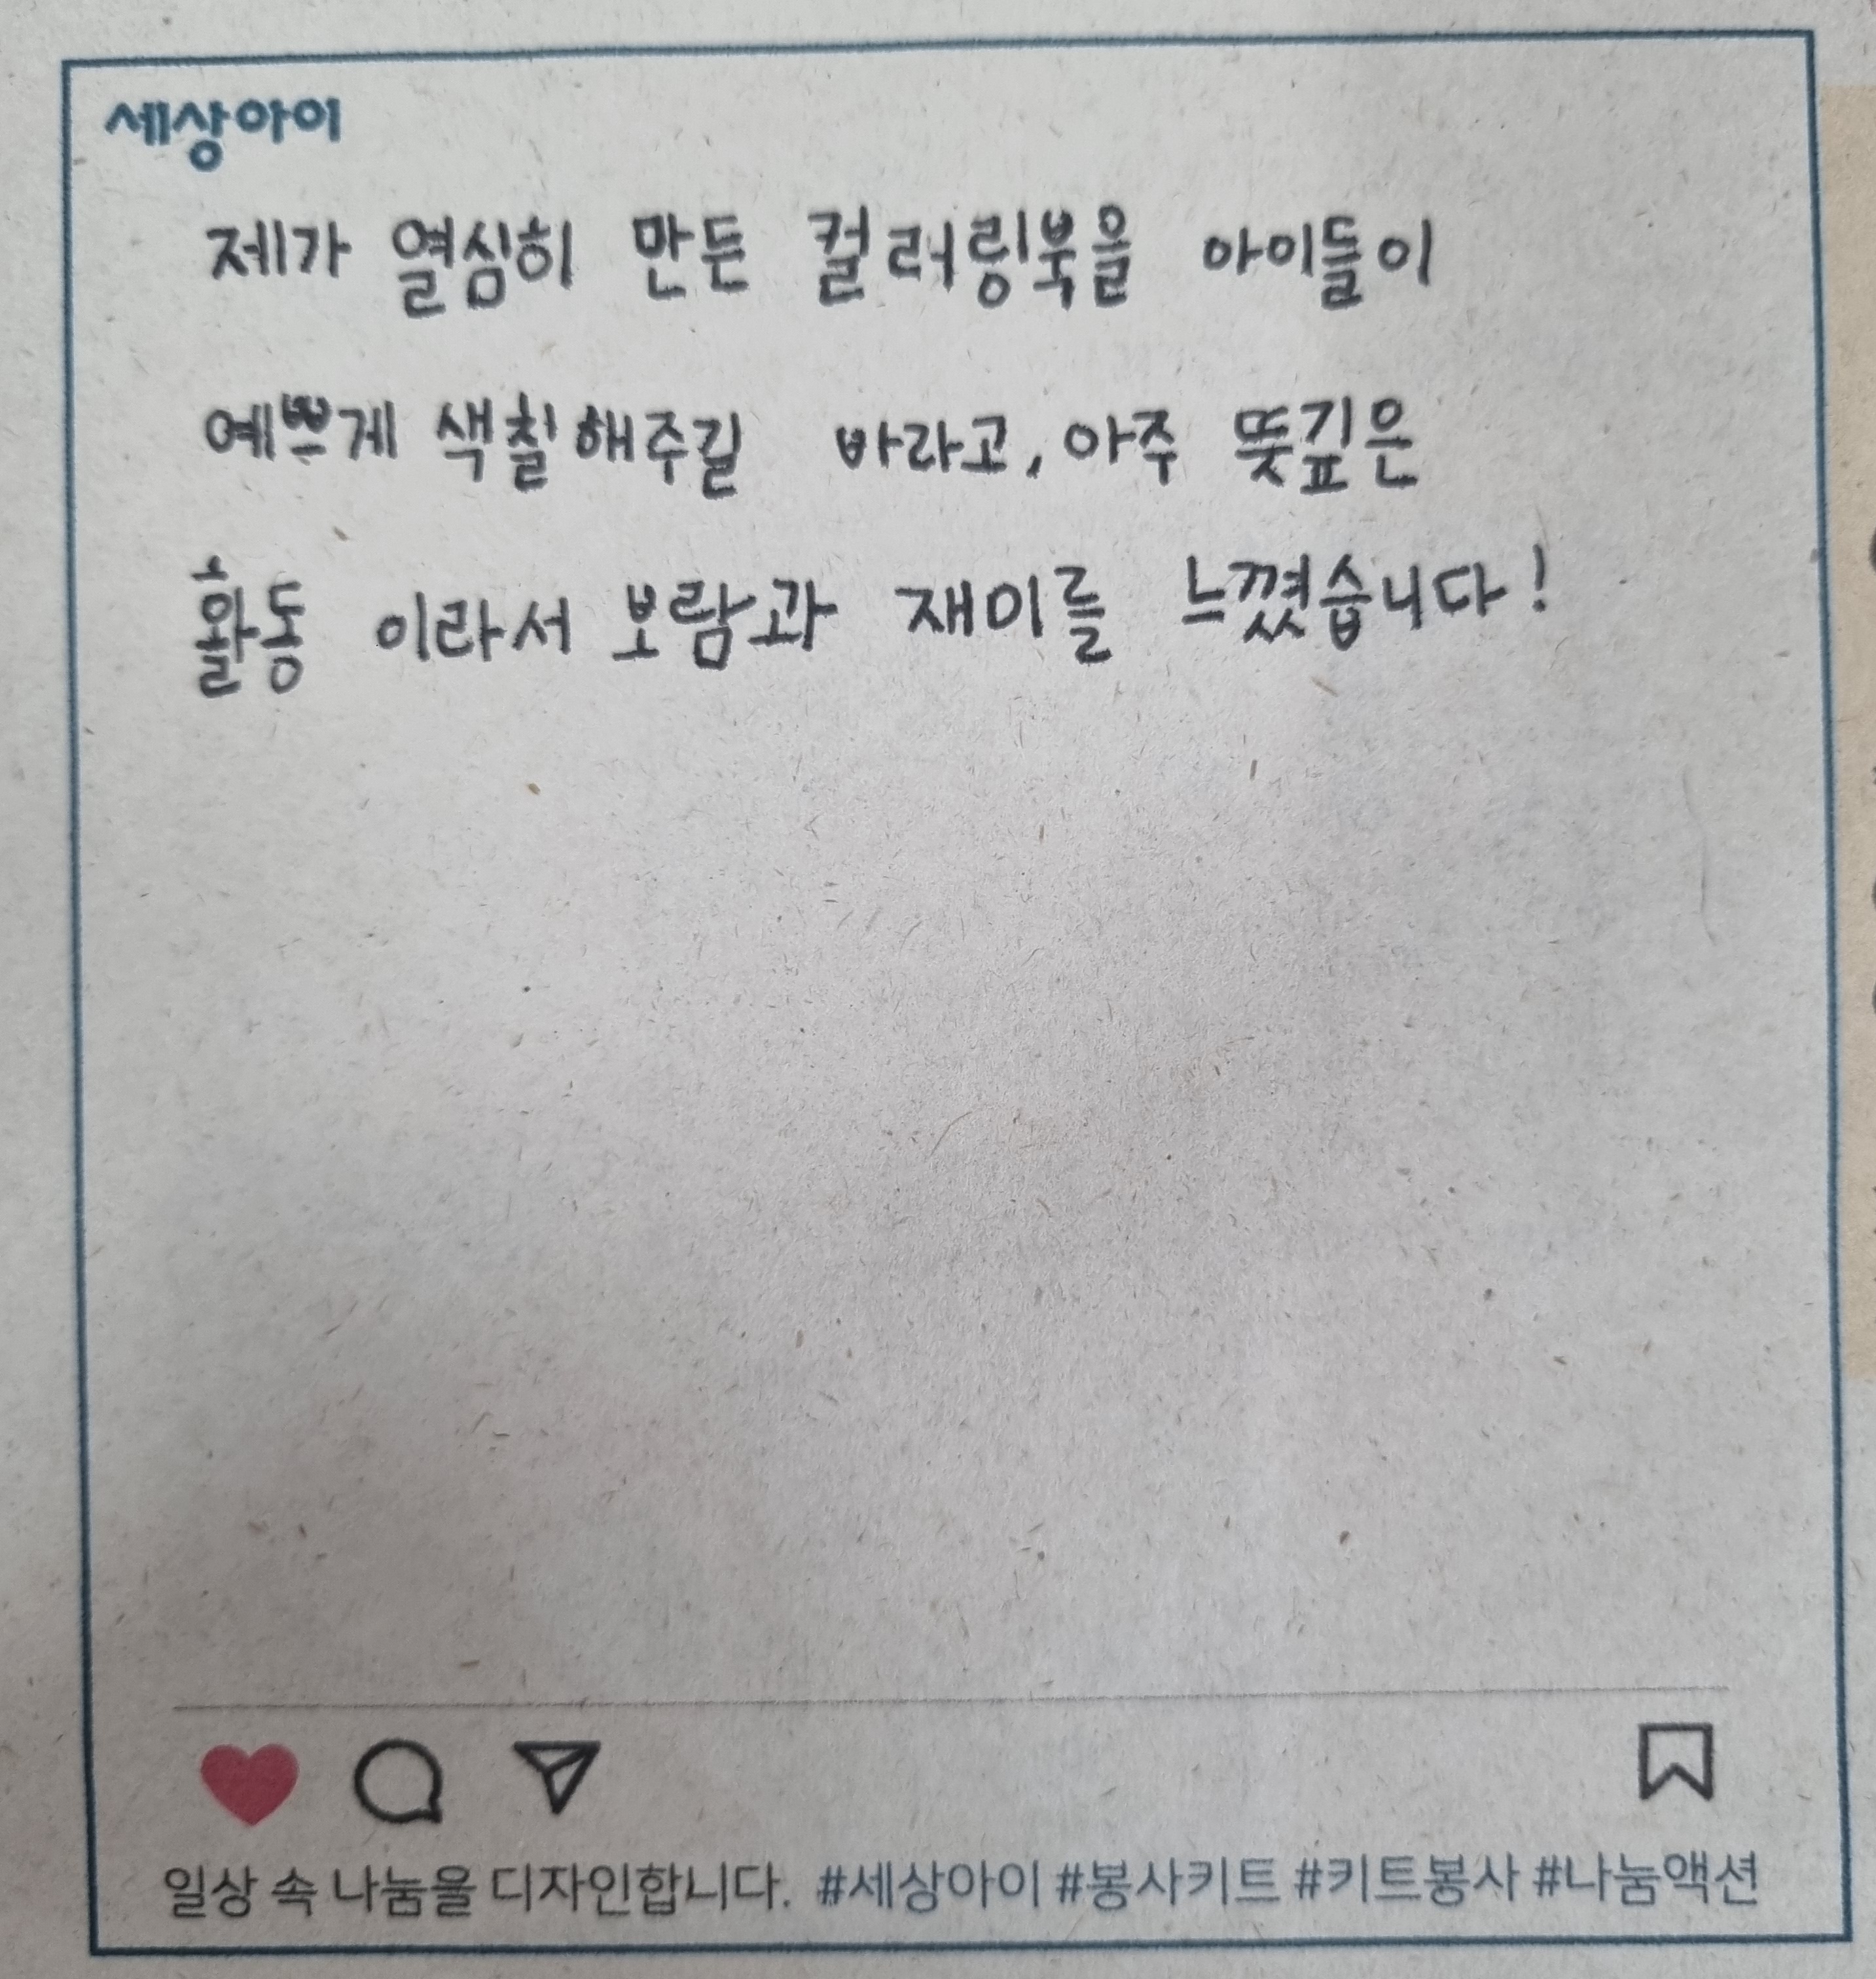 세상아이
제가 열심히 만든 컬러링북을 아이들이
예쁘게 색칠해주길 바라고, 아주 뜻깊은
활동 이라서 보람과 재미를 느꼈습니다!
일상 속 나눔을 디자인합니다. #세상아이 #봉사키트 #키트봉사 #나눔액션